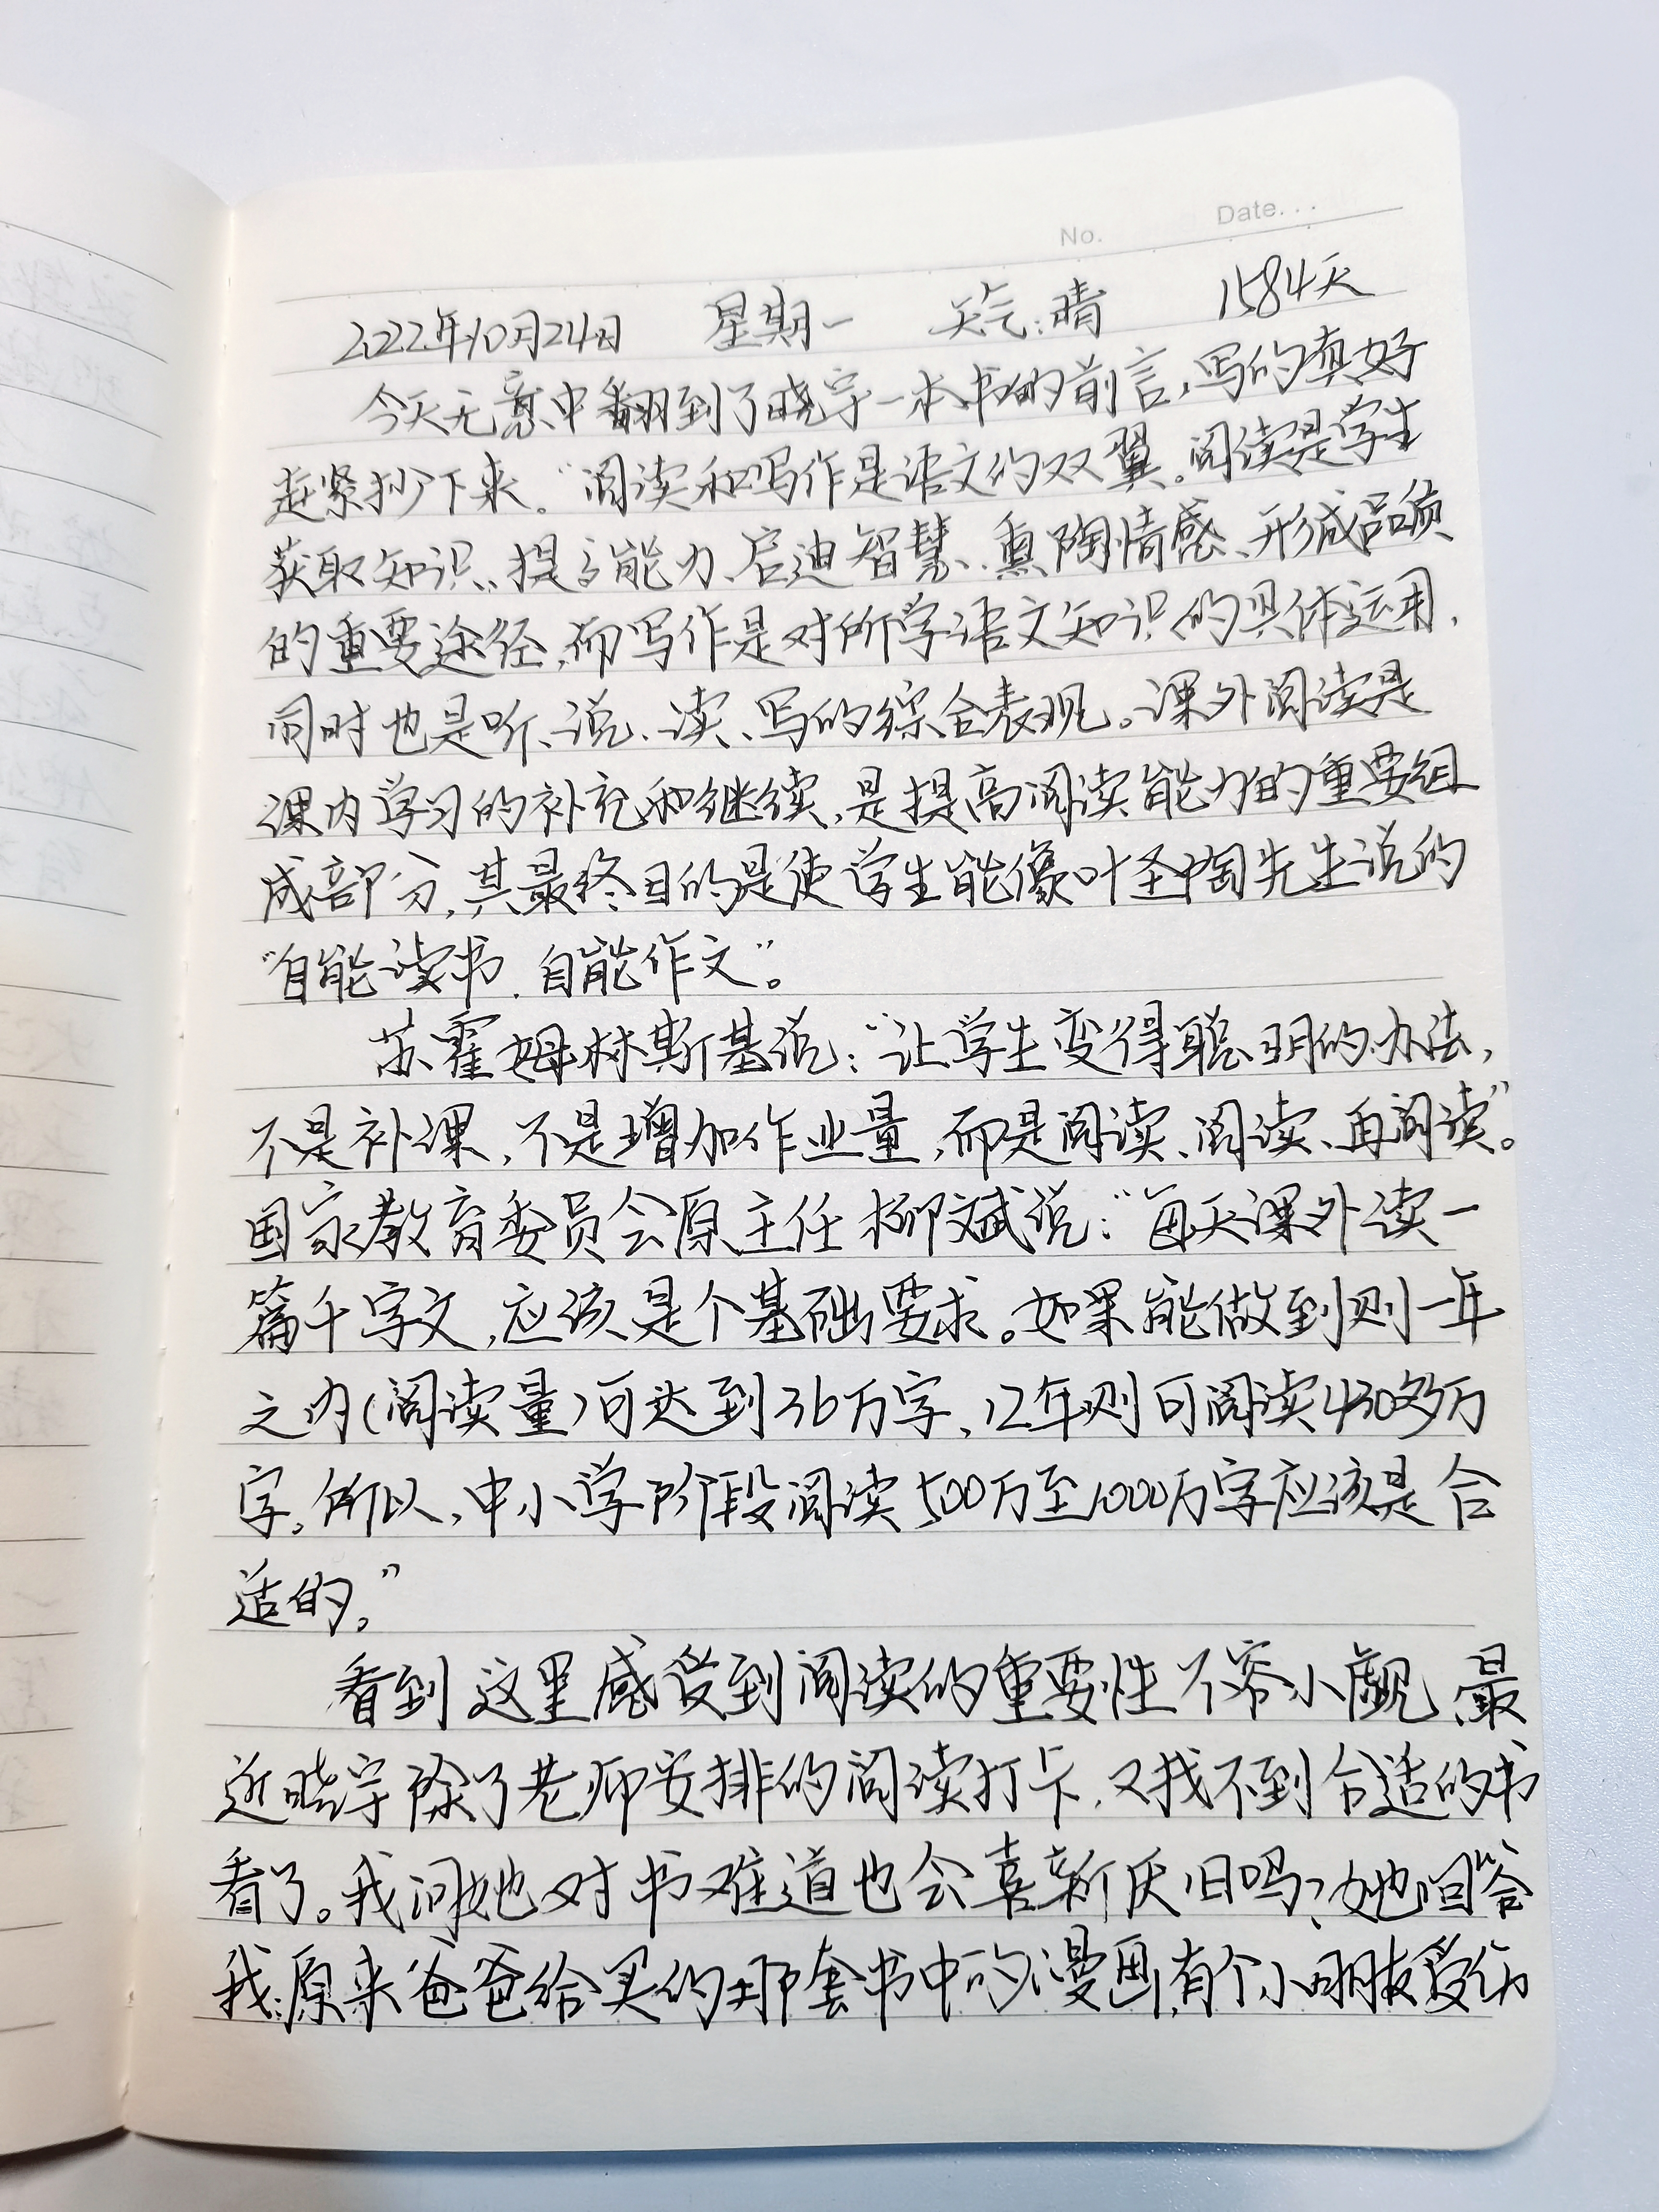 No. Date...
2022年10月24日 星期一 天气:晴 1584天
今天无意中翻到了晓宇一本书的前言,写的真好
赶紧抄下来。“阅读和写作是语文的双翼。阅读是学生
获取知识、提高能力、启迪智慧、熏陶情感、形成品质
的重要途径,而写作是对所学语文知识的具体运用,
同时也是听、说、读、写的综合表现。课外阅读是
课内学习的补充和继续,是提高阅读能力的重要组
成部分,其最终目的是使学生能像叶圣陶先生说的
“自能读书,自能作文”。
苏霍姆林斯基说:“让学生变得聪明的办法,
不是补课,不是增加作业量,而是阅读、阅读、再阅读”。
国家教育委员会原主任柳斌说:“每天课外读一
篇千字文,应该是个基础要求。如果能做到则一年
之内(阅读量)可达到36万字,12年则可阅读430多万
字。所以,中小学阶段阅读500万至1000万字应该是合
适的。”
看到这里感受到阅读的重要性不容小觑,最
近晓宇除了老师安排的阅读打卡,又找不到合适的书
看了。我问她对书难道也会喜新厌旧吗?她回答
我:原来爸爸给买的那套书中的漫画,有个小朋友受伤